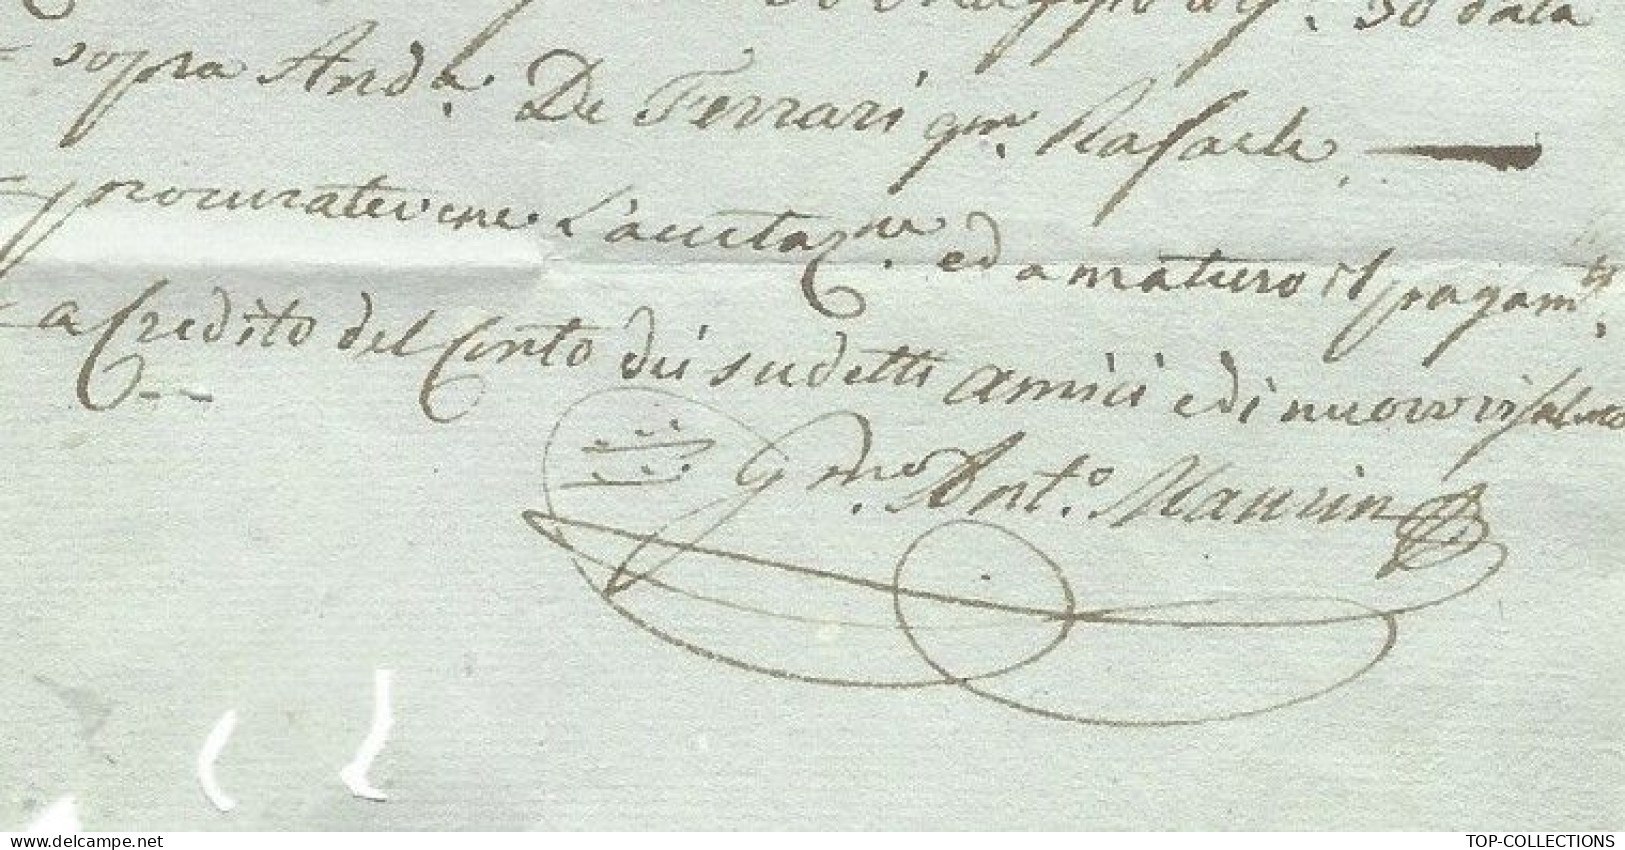 Maggio a gi. 30 data
sopra And.a De Ferrari qm. Rafaele
procuratevene l'accetaz.ne ed a maturo il pagam.to
a Credito del Conto dei sudetti amici e di nuovo vi saluto
Ant.o Maurin
TOP-COLLECTIONS